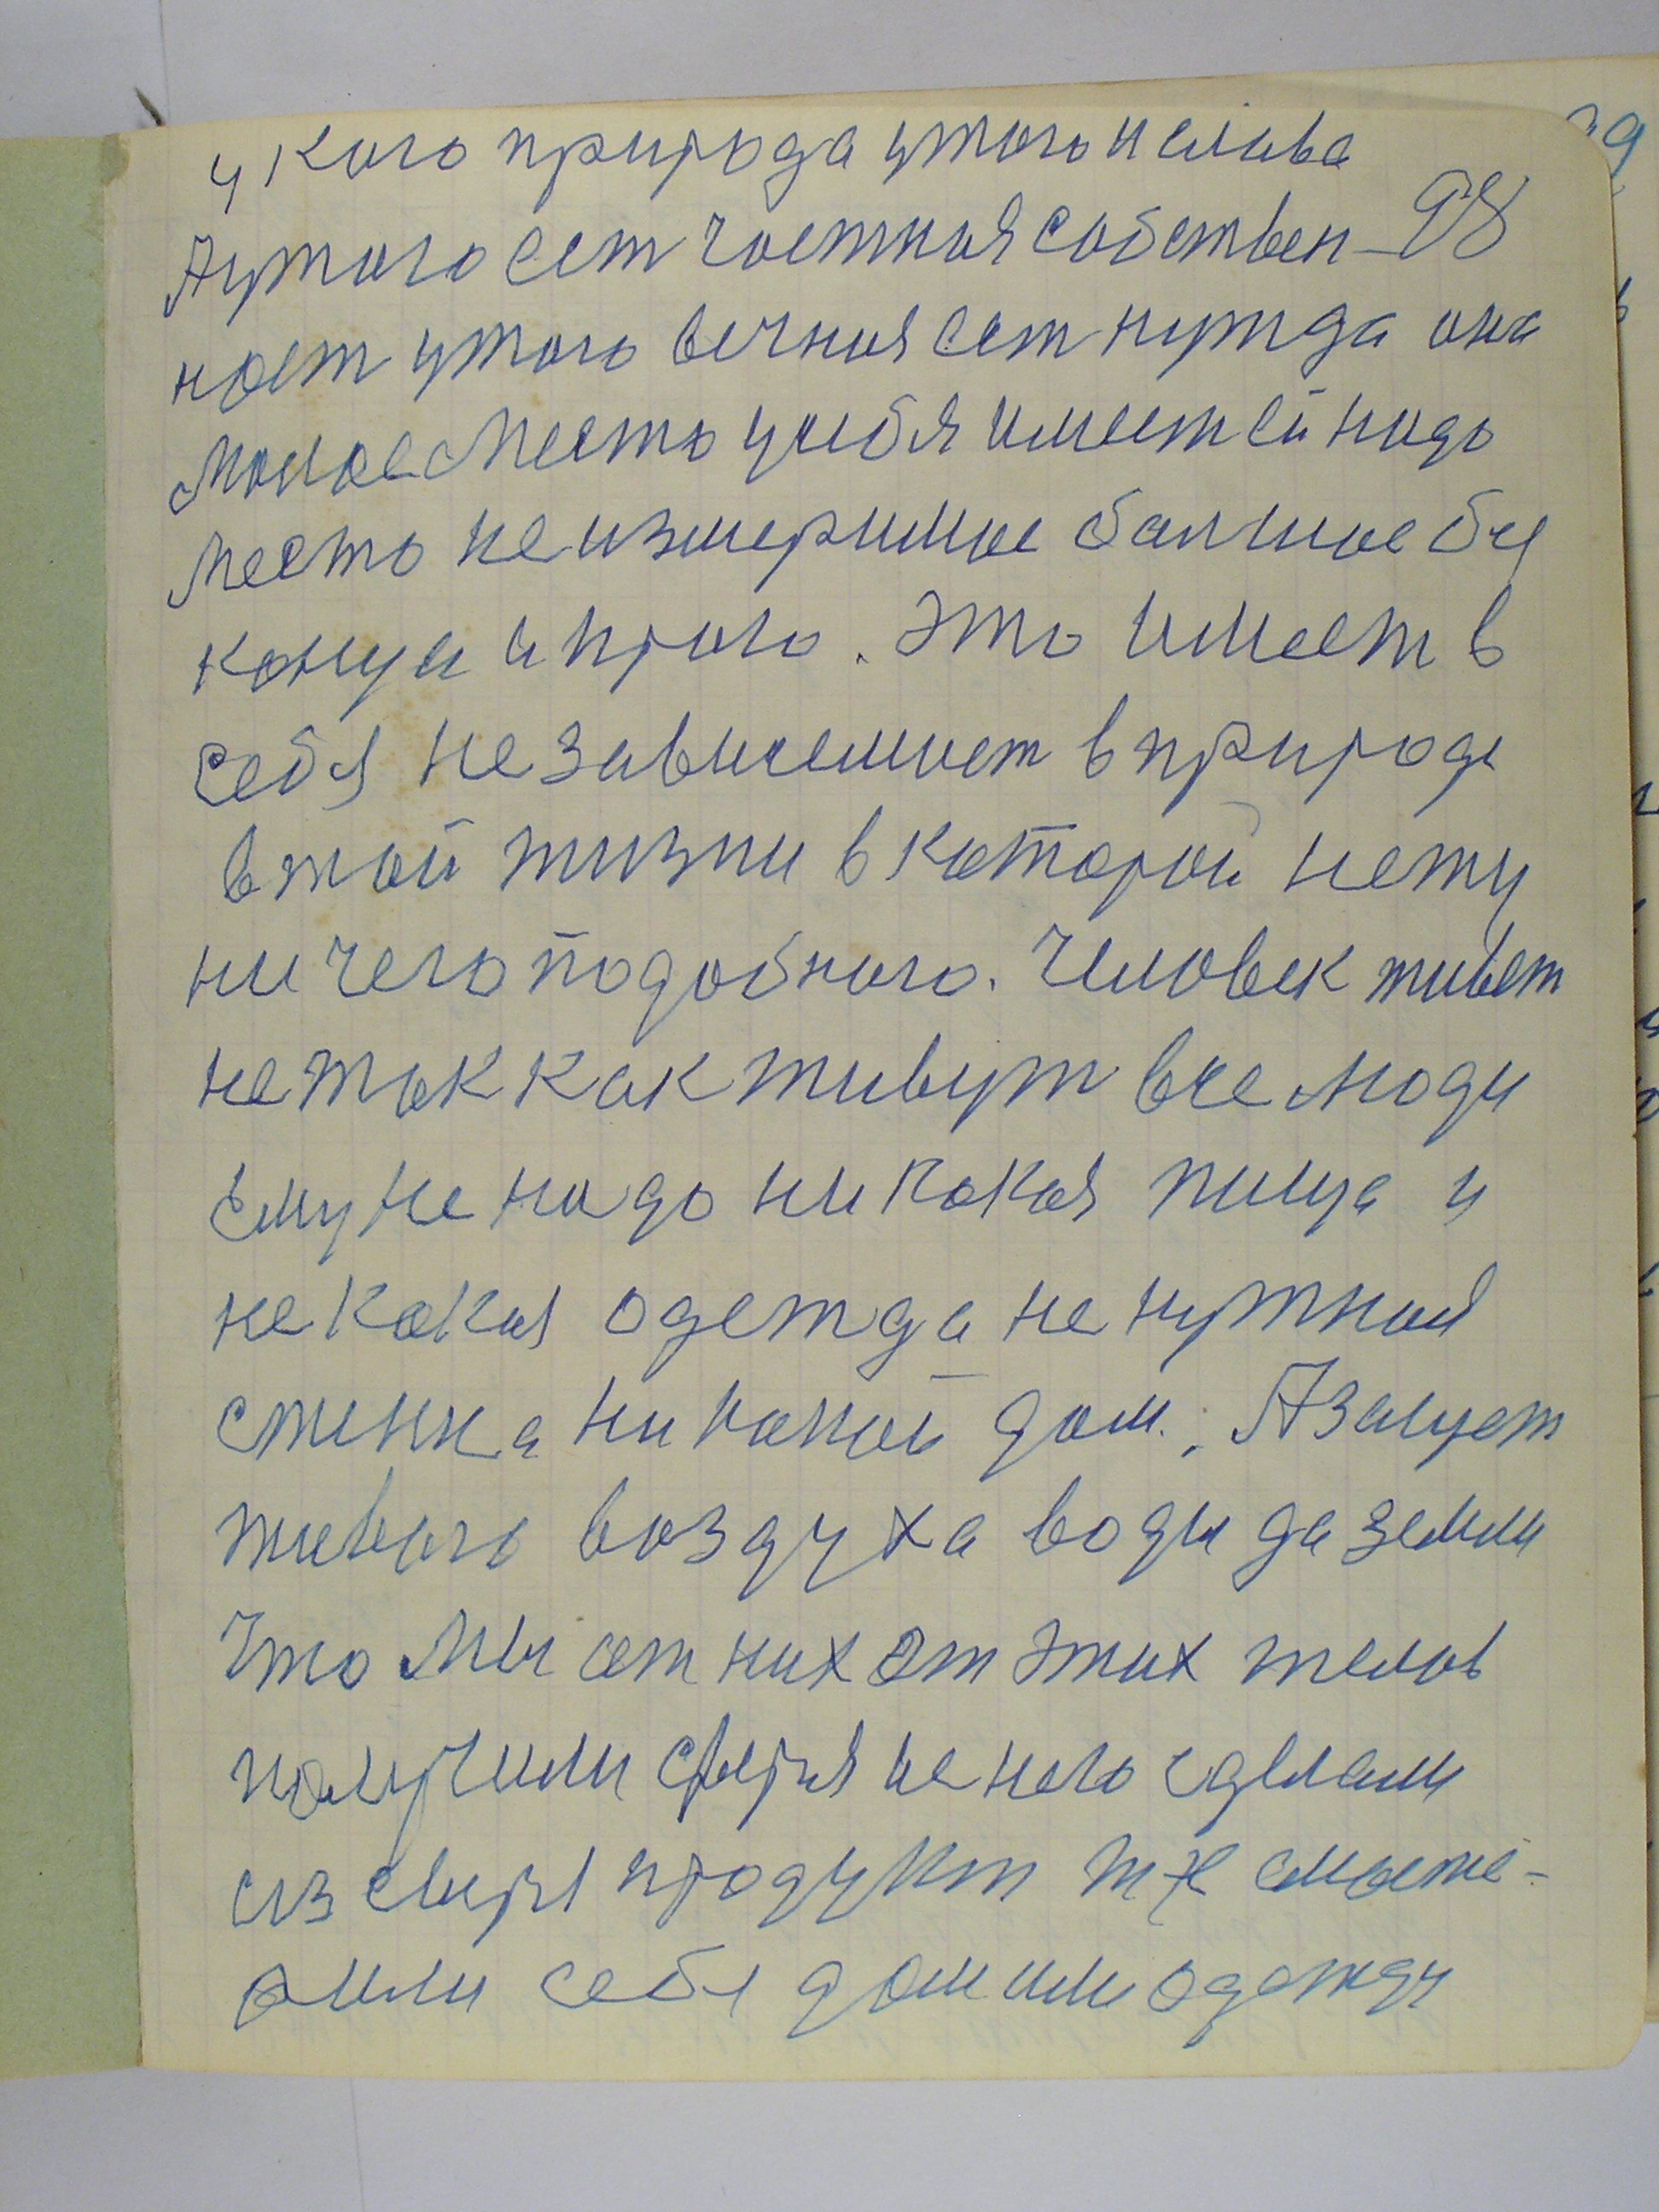 у кого природа у того и слава
А у того сест частная собствен- 98
ност у того вечная сест нужда она
малое место у себя имеет ей надо
место неизмеримое балшое бес
конца и праю. Это имеет в
себя независемост в природе
в той жизни в каторой нету
ни чего подобного. Человек живет
не так как живут все люди
ему не надо ни какая пища и
не какая одежда не нужная
стенка ни какой дом. А защет
живого воздуха воды да земли
Что мы от них от этих телов
получили сырья не него сделали
из сырья продукт тже
или себе дом или одежду